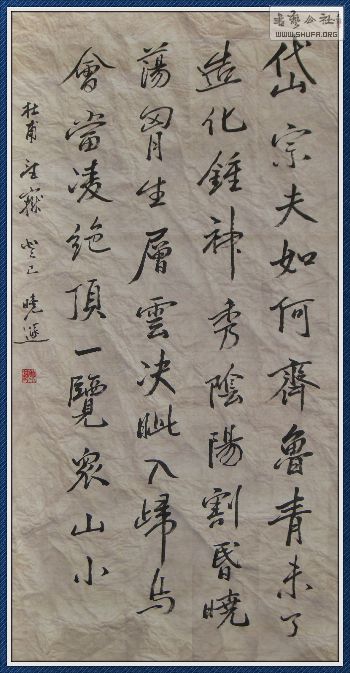 岱宗夫如何齊魯青未了
造化鍾神秀陰陽割昏曉
蕩胷生層雲决眦入歸鳥
會當凌絕頂一覽衆山小
杜甫望嶽 癸巳 曉
书艺公社
WWW.SHUFA.ORG